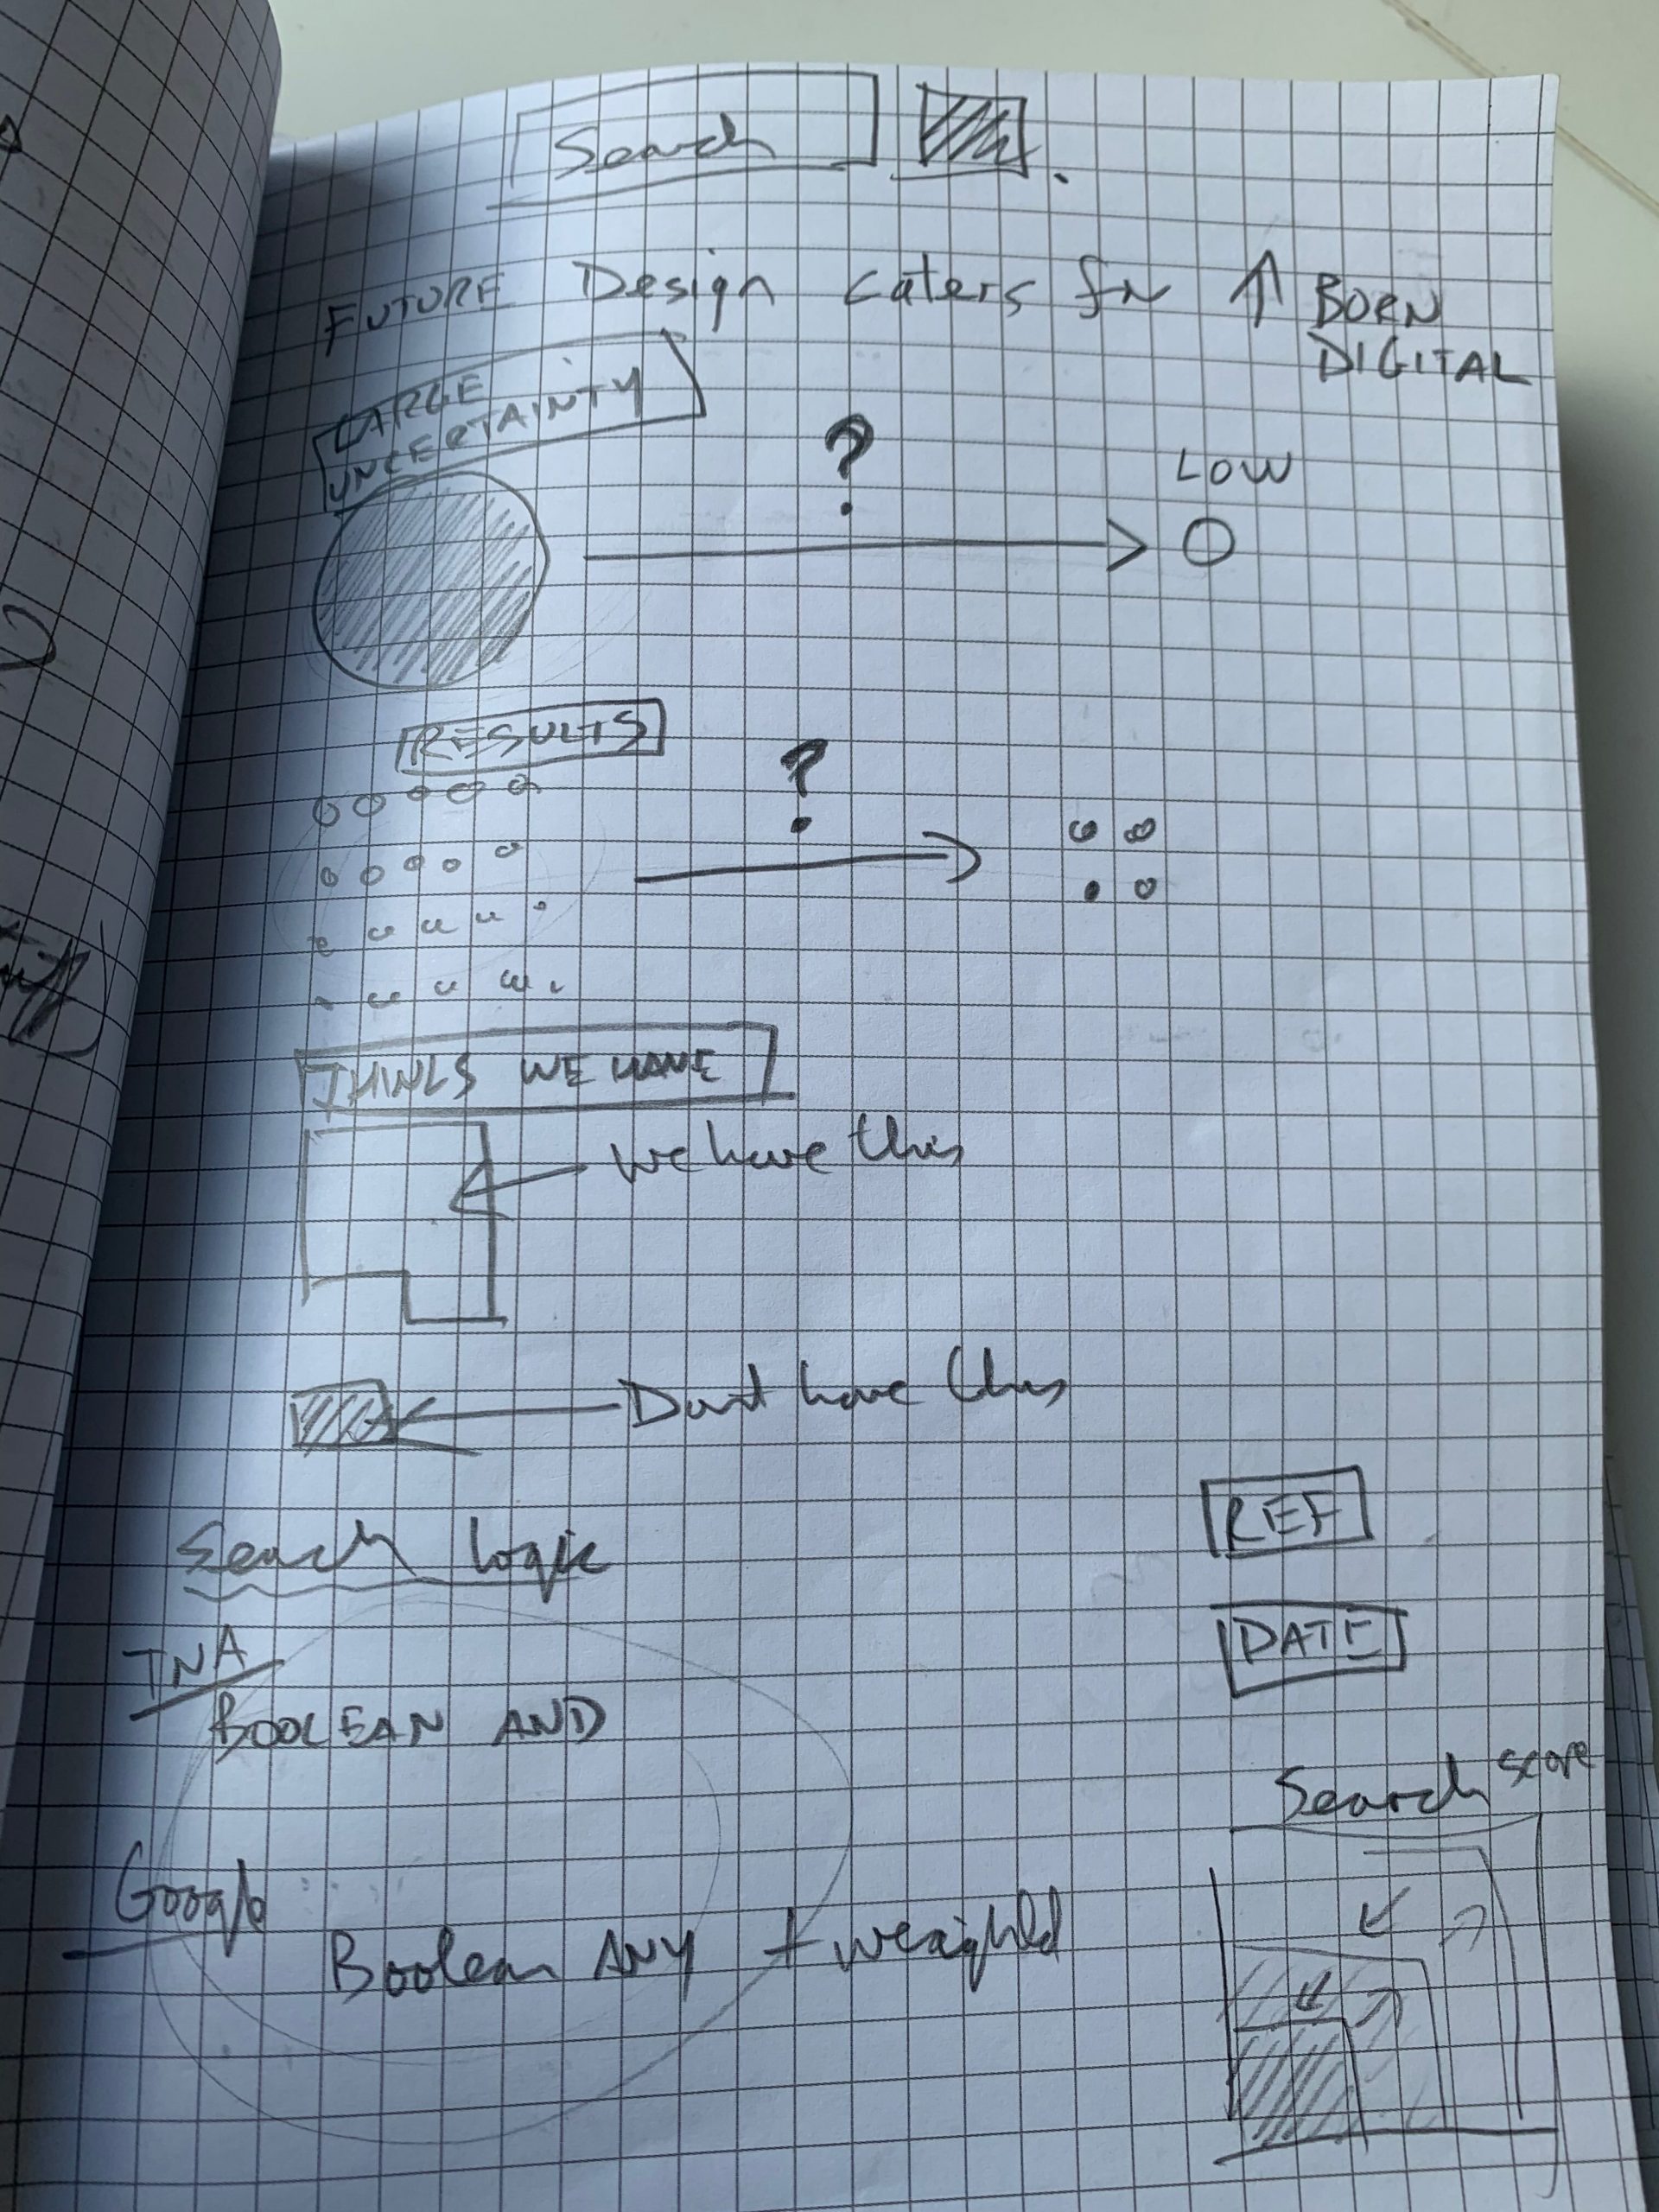 Search
FUTURE Design caters for ↑ BORN
DIGITAL
LARGE
UNCERTAINTY
?
LOW
RESULTS
?
THINGS WE HAVE
We have this
Dont have this
Search Logic
REF
DATE
TNA
BOOLEAN AND
Search scope
Google
Boolean ANY + weighted